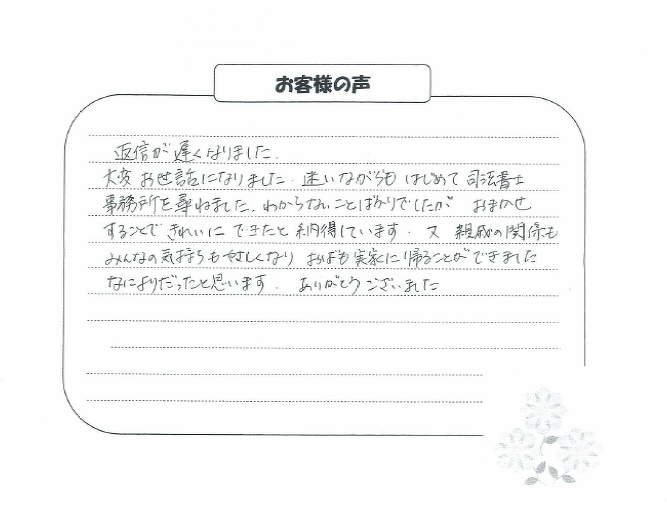 お客様の声
返信が遅くなりました.
大変お世話になりました. 迷いながらも はじめて 司法書士
事務所を尋ねました. わからないことばかりでしたが おまかせ
することで きれいに できたと 納得しています. 又 親戚の関係も
みんなの気持ちもやさしくなり おばも実家に帰ることができました
なによりだったと思います. ありがとうございました